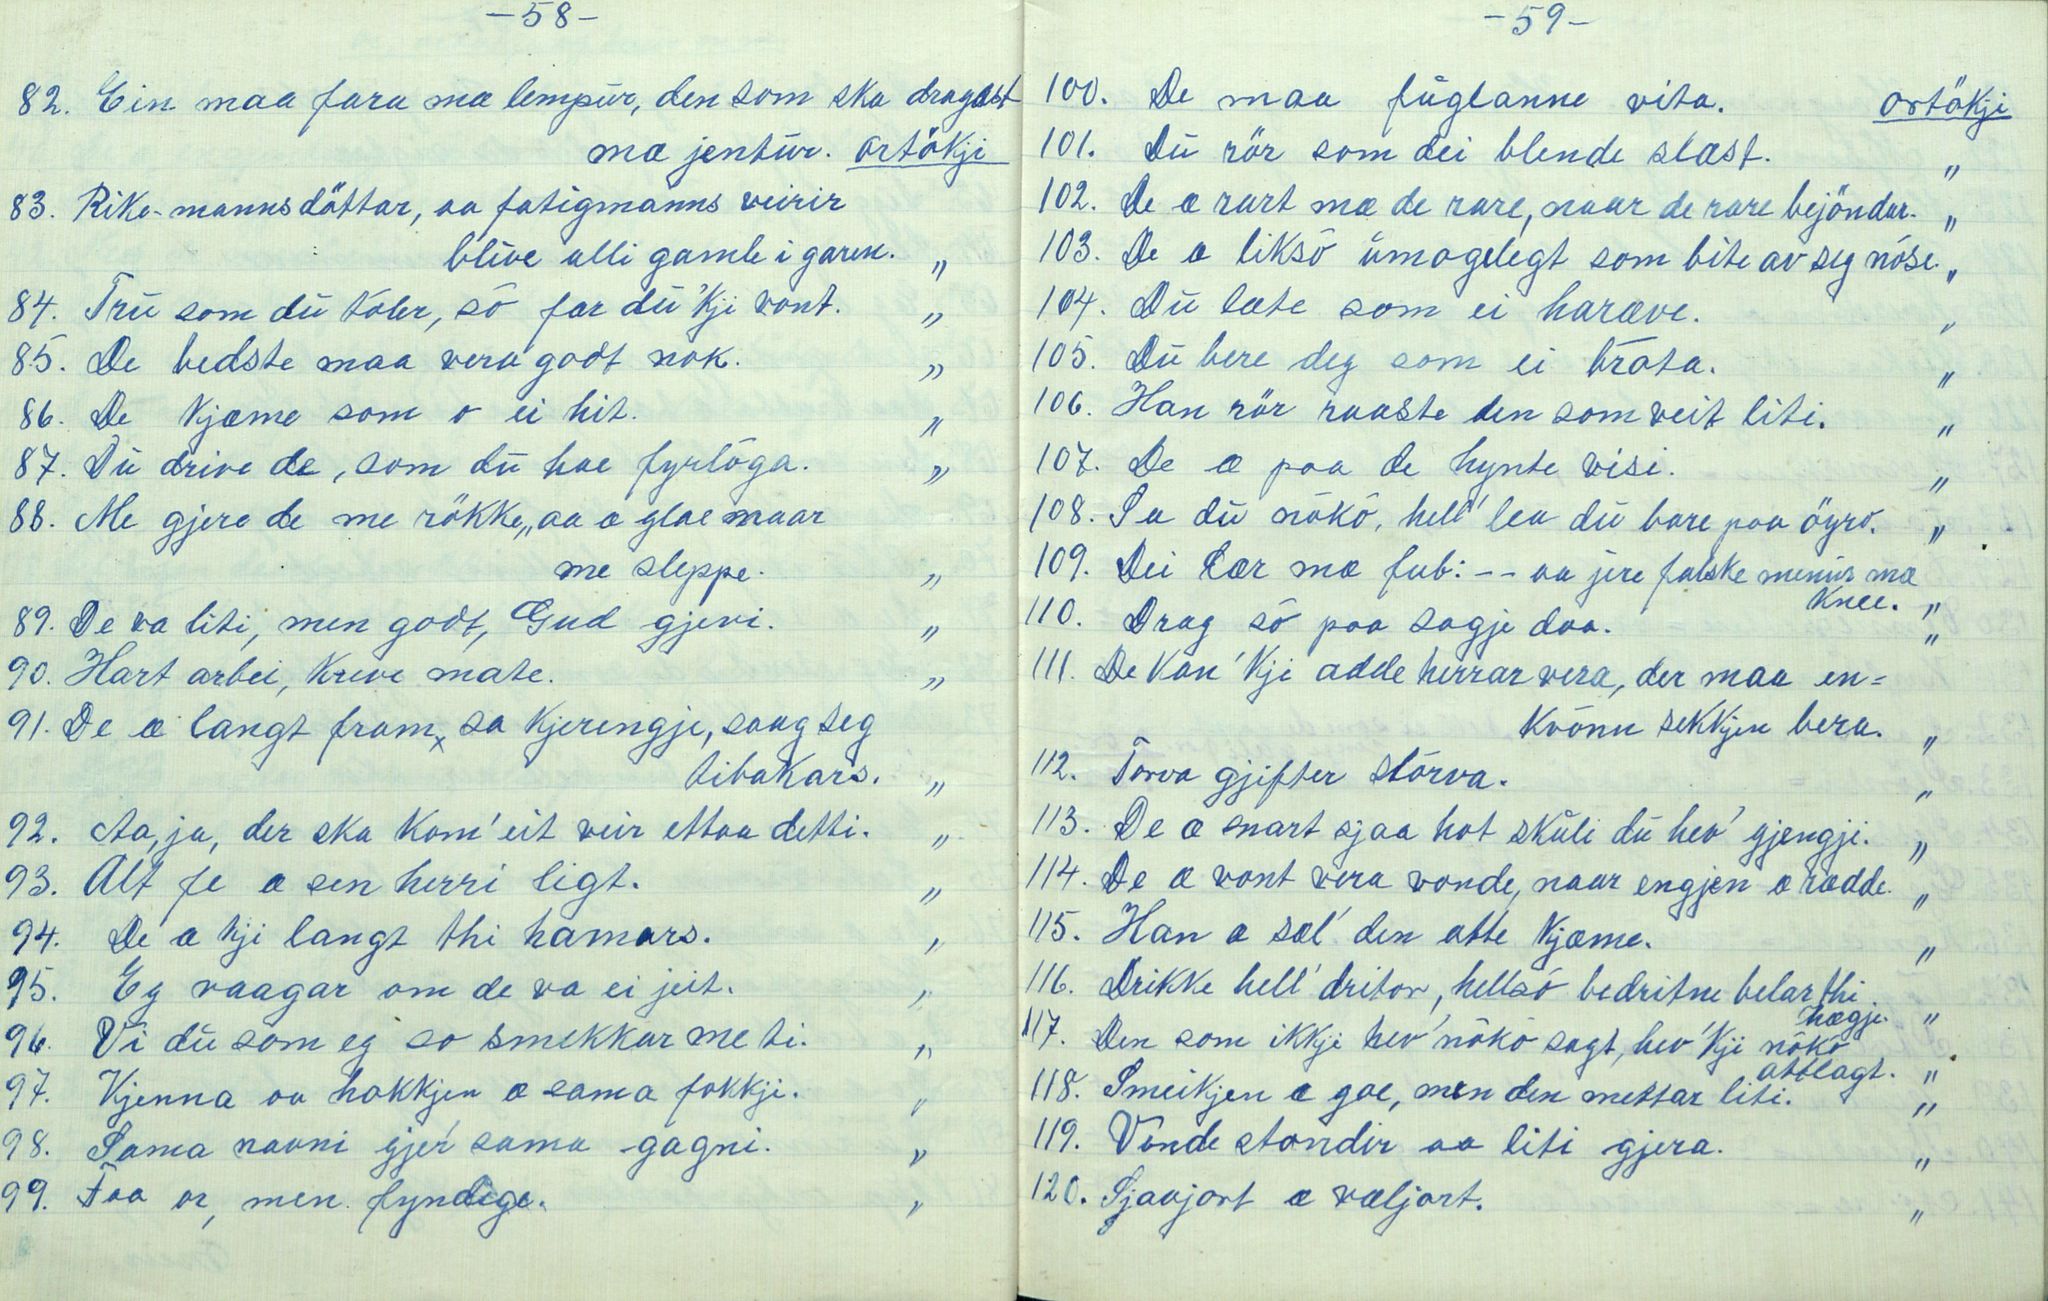 -58-
82. Ein maa fara mæ lempur, den som ska dragast
mæ jentur. ortökji
83. Rike-mannsdöttar, aa fatigmanns veirir
blive alli gamle i garen. „
84. Tru som du toler, sö fær du 'kji vont. „
85. De bedste maa vera godt nok. „
86. De kjæme som o ei hit. „
87. Du drive de, som du hae fyrlöga. „
88. Me gjere de me rökke, „aa æ glae maar
me sleppe. „
89. De va liti, men godt, Gud gjevi. „
90. Hart arbei, kreve mate. „
91. De æ langt fram, sa kjeringje, saag seg
tibakars. „
92. Aa, ja, der ska kom' eit veir ettaa detti. „
93. Alt fe æ sen herri ligt. „
94. De æ kji langt thi hamars. „
95. Eg vaagar om de va ei jeit. „
96. Vi du som eg so smekkar me ti. „
97. Kjenna aa hakkjen æ sama fokkji. „
98. Sama navni gjer sama gagni. „
99. Faa or, men fyndige. „
-59-
100. De maa fuglanne vita. ortökji
101. Du rör som dei blende slæst. „
102. De æ rart mæ de rare, naar de rare bejöndar. „
103. De æ liksö umogelegt som bite av seg nöse. „
104. Du læte som ei haræve. „
105. Du bere deg som ei bråta. „
106. Han rör raaste den som veit liti. „
107. De æ paa de hynte visi. „
108. Sa du nökö, hell' lea du bare paa öyro. „
109. Dei lær mæ fub: -- aa jere falske minur mæ
knee. „
110. Drag sö paa sagje daa. „
111. De kan 'kji adde herrar vera, der maa en=
kvönn sekkjen bera. „
112. Torva gjifter störva. „
113. De æ snart sjaa hot skuli du hev' gjengji. „
114. De æ vont vera vonde, naar engjen æ rædde. „
115. Han æ sæl' den atte kjæme. „
116. Drikke hell' driter, hellsö bedritne belar thi
hægje. „
117. Den som ikkje hev' nökö sagt, hev' kji nökö
attlagt. „
118. Smeikjen æ goe, men den mettar liti. „
119. Vonde stondir aa liti gjera. „
120. Sjaavjort æ væljort. „